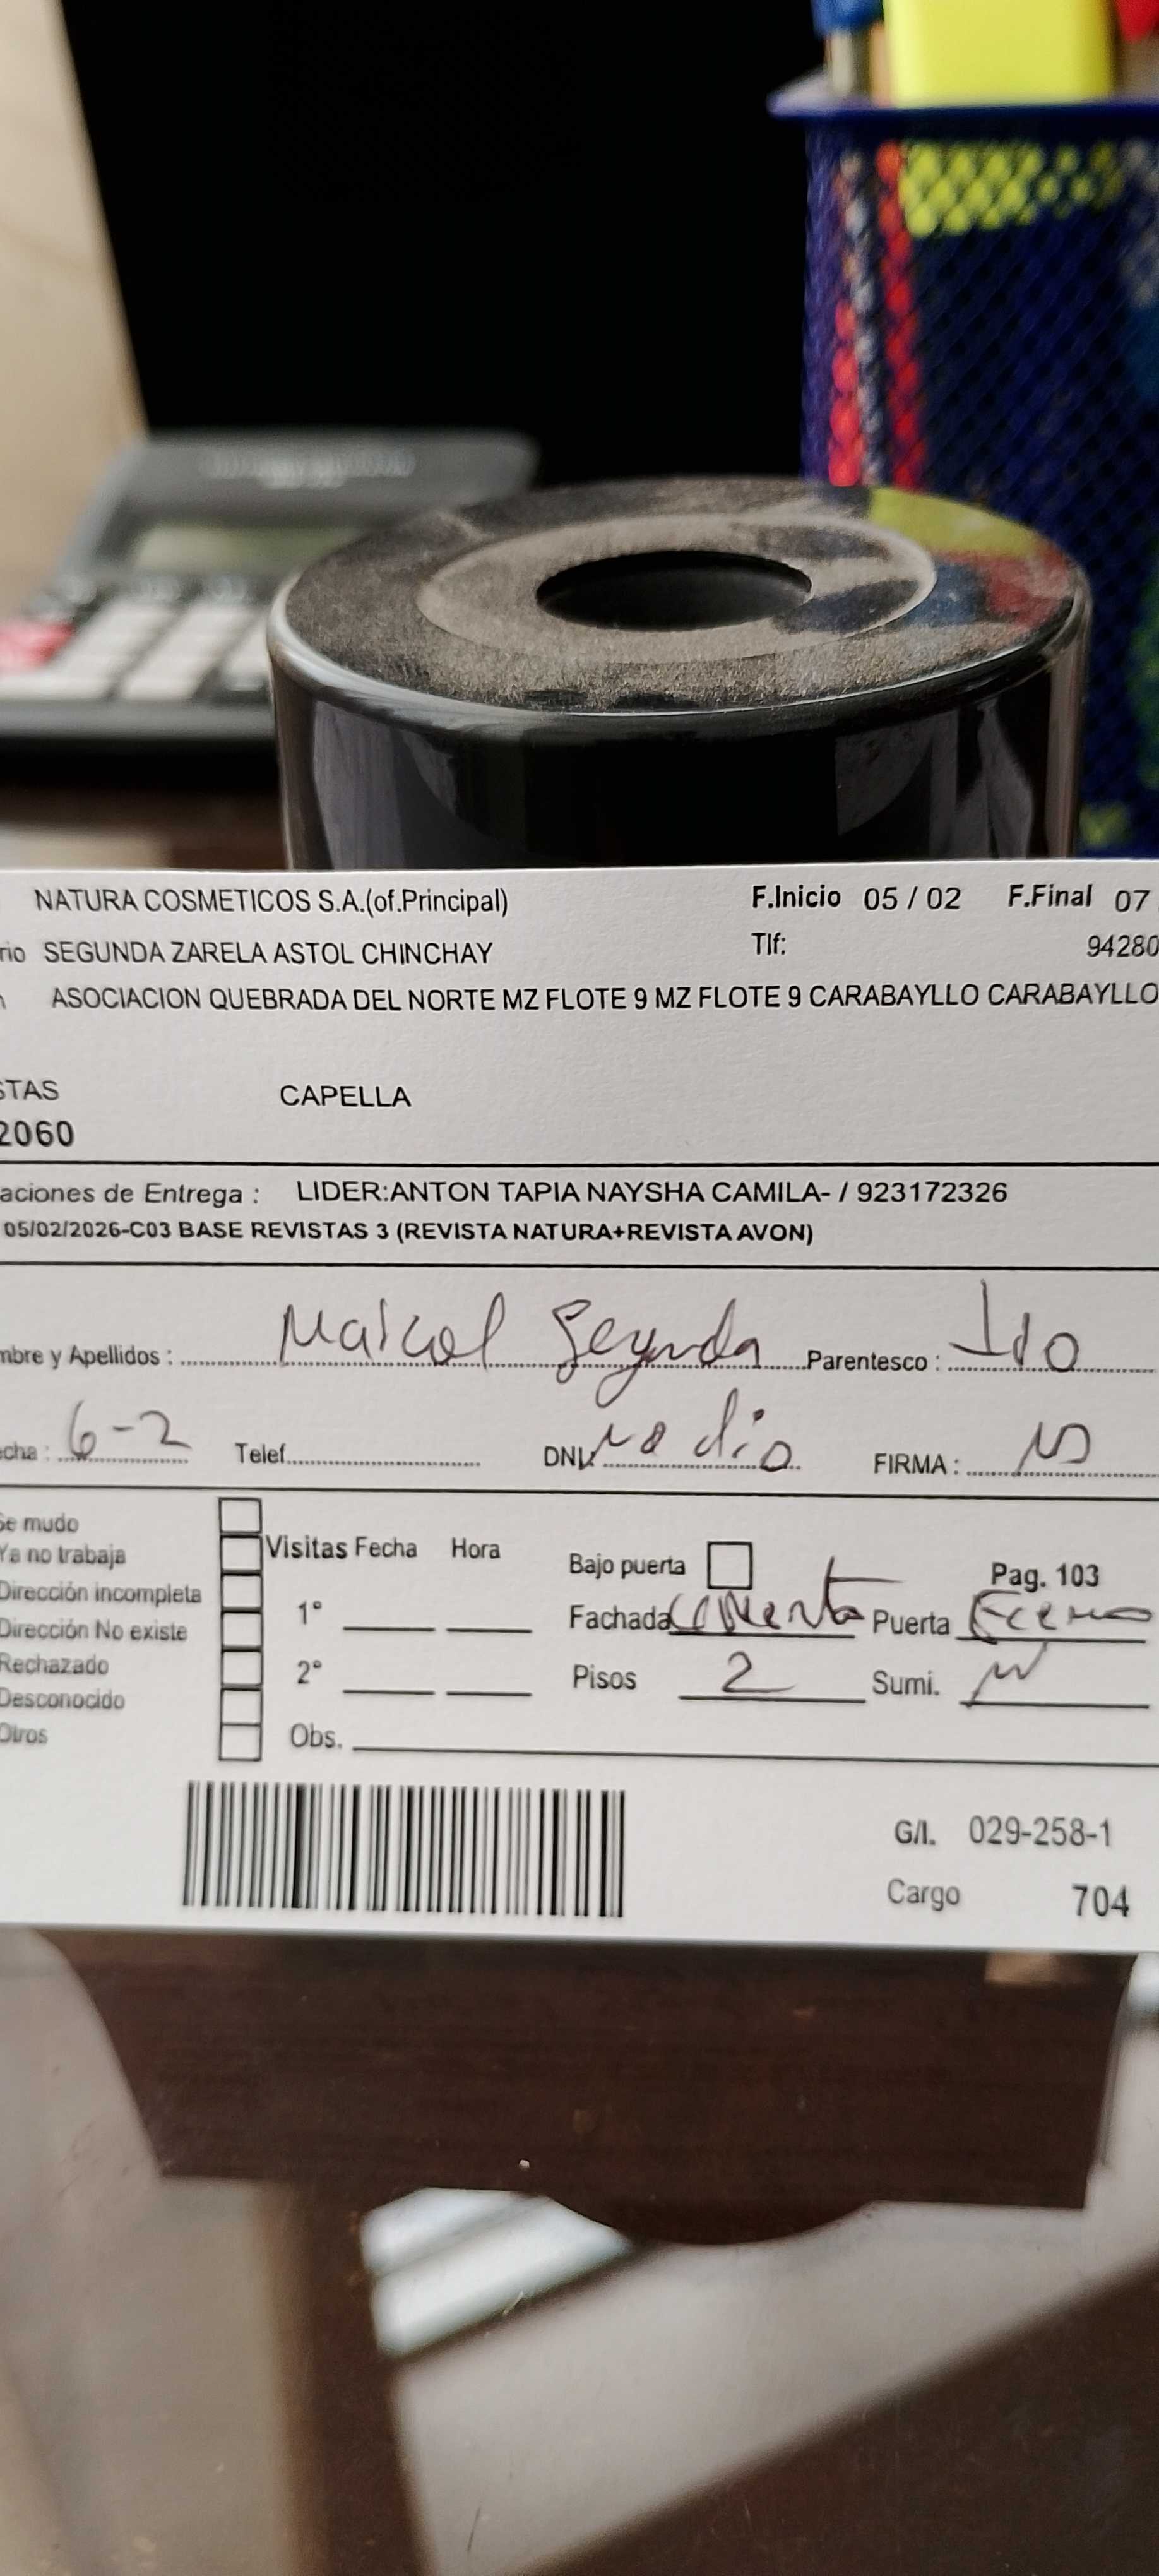 NATURA COSMETICOS S.A.(of.Principal) F.Inicio 05 / 02 F.Final 07
rio SEGUNDA ZARELA ASTOL CHINCHAY Tlf: 94280
ASOCIACION QUEBRADA DEL NORTE MZ FLOTE 9 MZ FLOTE 9 CARABAYLLO CARABAYLLO
STAS CAPELLA
2060
aciones de Entrega : LIDER:ANTON TAPIA NAYSHA CAMILA- / 923172326
05/02/2026-C03 BASE REVISTAS 3 (REVISTA NATURA+REVISTA AVON)
mbre y Apellidos : Segunda Parentesco :
cha : 6-2 Telef. DNI. no dio FIRMA :
Se mudo
Ya no trabaja Visitas Fecha Hora Bajo puerta Pag. 103
Dirección incompleta 1° Fachada Puerta
Dirección No existe
Rechazado 2° Pisos 2 Sumi.
Desconocido
Otros Obs.
G/I. 029-258-1
Cargo 704